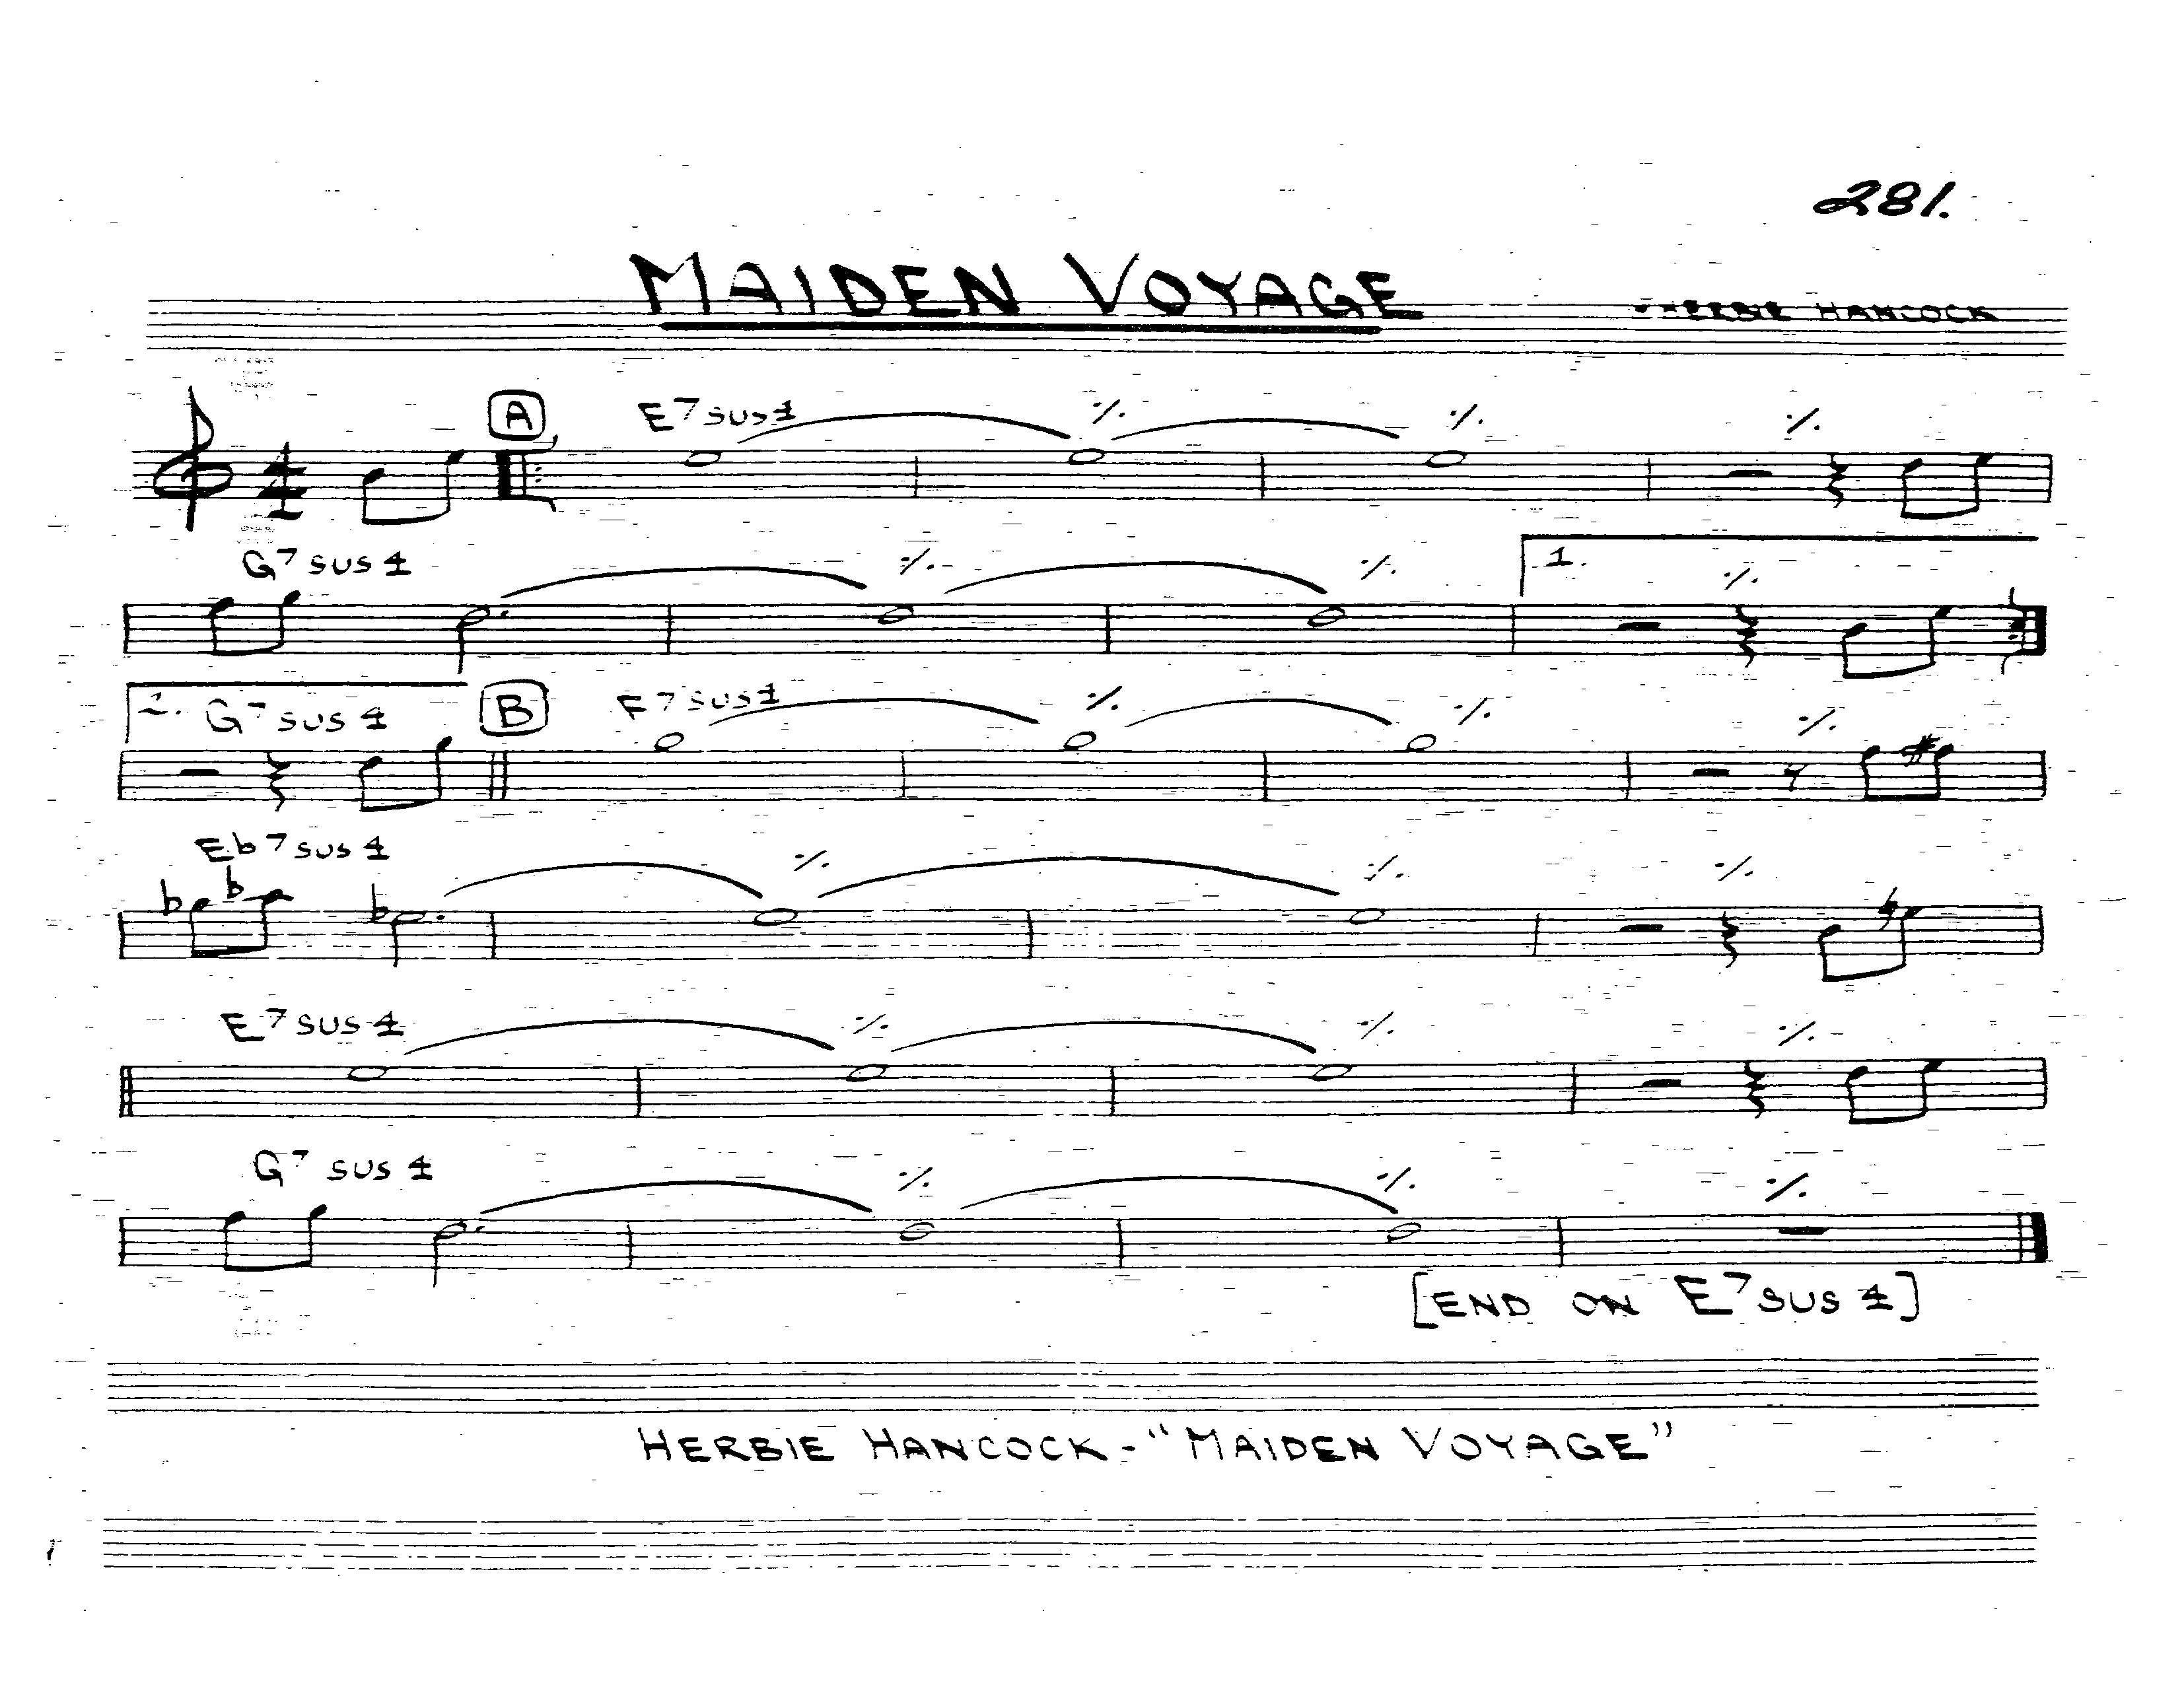 281.
MAIDEN VOYAGE
-HERBIE HANCOCK
A E7sus4
G7sus4 1.
2. G7sus4 B F7sus4
Eb7sus4
E7sus4
G7 sus4
[END ON E7sus4]
HERBIE HANCOCK-"MAIDEN VOYAGE"